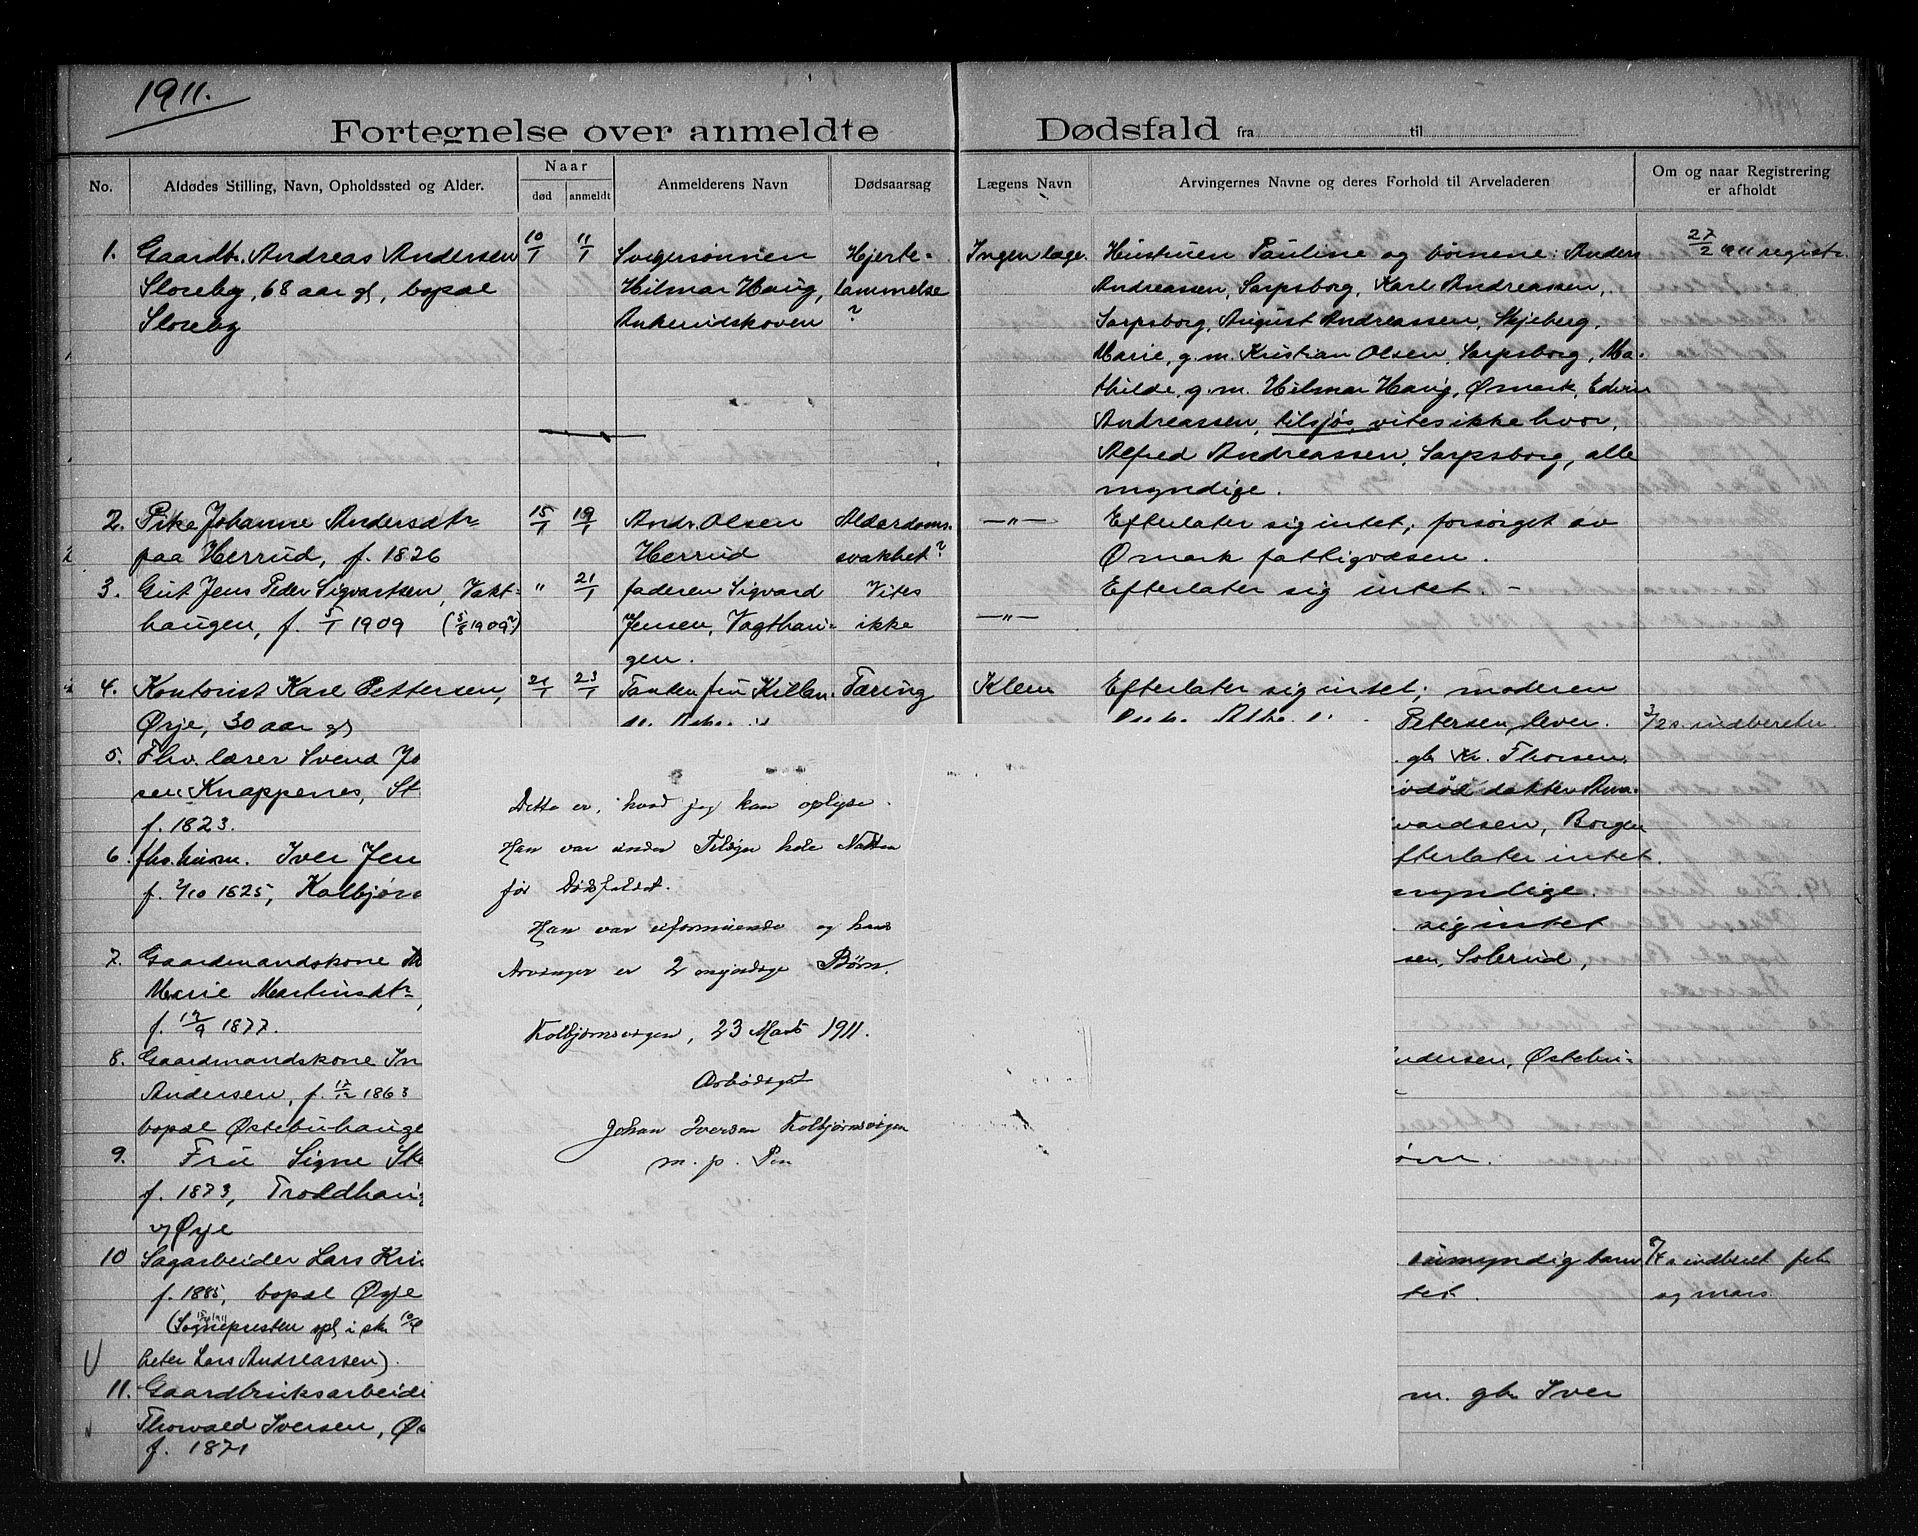 1911.
Fortegnelse over anmeldte Dødsfald fra til
No.
Afdødes Stilling, Navn, Opholdssted og Alder.
Naar
død
anmeldt
Anmelderens Navn
Dødsaarsag
Lægens Navn
Arvingernes Navne og deres Forhold til Arveladeren
Om og naar Registrering
er afholdt
1. Gaardbr. Andreas Andersen
Sloreby, 68 aar gl, bopæl
Sloreby
10/1
11/1
Svigersønnen
Hilmar Haug,
Ankerudskoven
Hjerte-
lammelse
?
Ingen læge
Hustruen Pauline og børnene: Anders
Andreassen, Sarpsborg, Karl Andreassen,
Sarpsborg, August Andreassen, Skjeberg,
Marie, g. m. Kristian Olsen, Sarpsborg, Ma-
thilde, g. m. Hilmar Haug, Ømark, Edvin
Andreassen, tilsjøs, vites ikke hvor,
Alfred Andreassen, Sarpsborg, alle
myndige.
27/2 1911 registr.
2. Pike Johanne Andersdtr
paa Herrud, f. 1826
15/1
19/1
Andr. Olsen
Herrud
Alderdoms-
svakhet?
—"—
Efterlater sig intet; forsørget av
Ømark fattigvæsen.
3. Gut Jens Peder Sigvartsen, Vakt-
haugen, f. 5/1 1909 (5/8 1909?)
"
21/1
faderen Sigvard
Jensen, Vagthau-
gen.
Vites
ikke
—"—
Efterlater sig intet. -
4. Kontorist Karl Pettersen,
Ørje, 30 aar gl
21/1
23/1
Tanten fru Killen-
Tæring
Klem
Efterlater sig intet; moderen
Petersen, lever.
3/2 s. indberetn.
5. Fhv. lærer Svend Jo
sen Knappenes, St
f. 1823.
gbr Kr. Thorsen,
vdød datter Anna
vardsen, Borger
6. fhv. husm. Iver Jen
f. 2/10 1825, Kolbjørn
fterlater intet.
myndige.
sig intet
7. Gaardmandskone
Marie Martinsdtr,
f. 19/9 1877.
sen, Solerud,
8. Gaardmandskone In
Andersen, f. 17/12 1863
bopæl Østebuhauge
ndersen, Østebu-
9. Frue Signe Sk
f. 1873, Troldhau
v/ Ørje
10 Sagarbeider Lars Kri
f. 1885, bopæl Ørje
(Sognepresten opl i skr
heter Lars Andreassen).
umyndig barn
tet.
8/4 s indberet feb
og mars
11. Gaardbruksarbeide
Thorvald Iversen, Ø
f. 1871
m. gbr Iver
Dette er, hvad jeg kan oplyse.
Han var under Tilsyn hele Natten
før Dødsfaldet.
Han var uformuende og hans
Arvinger er 2 myndige Børn.
Kolbjørnsvigen, 23 Marts 1911.
Ærbødigst
Johan Iversen Kolbjørnsvigen
m. p. Pen